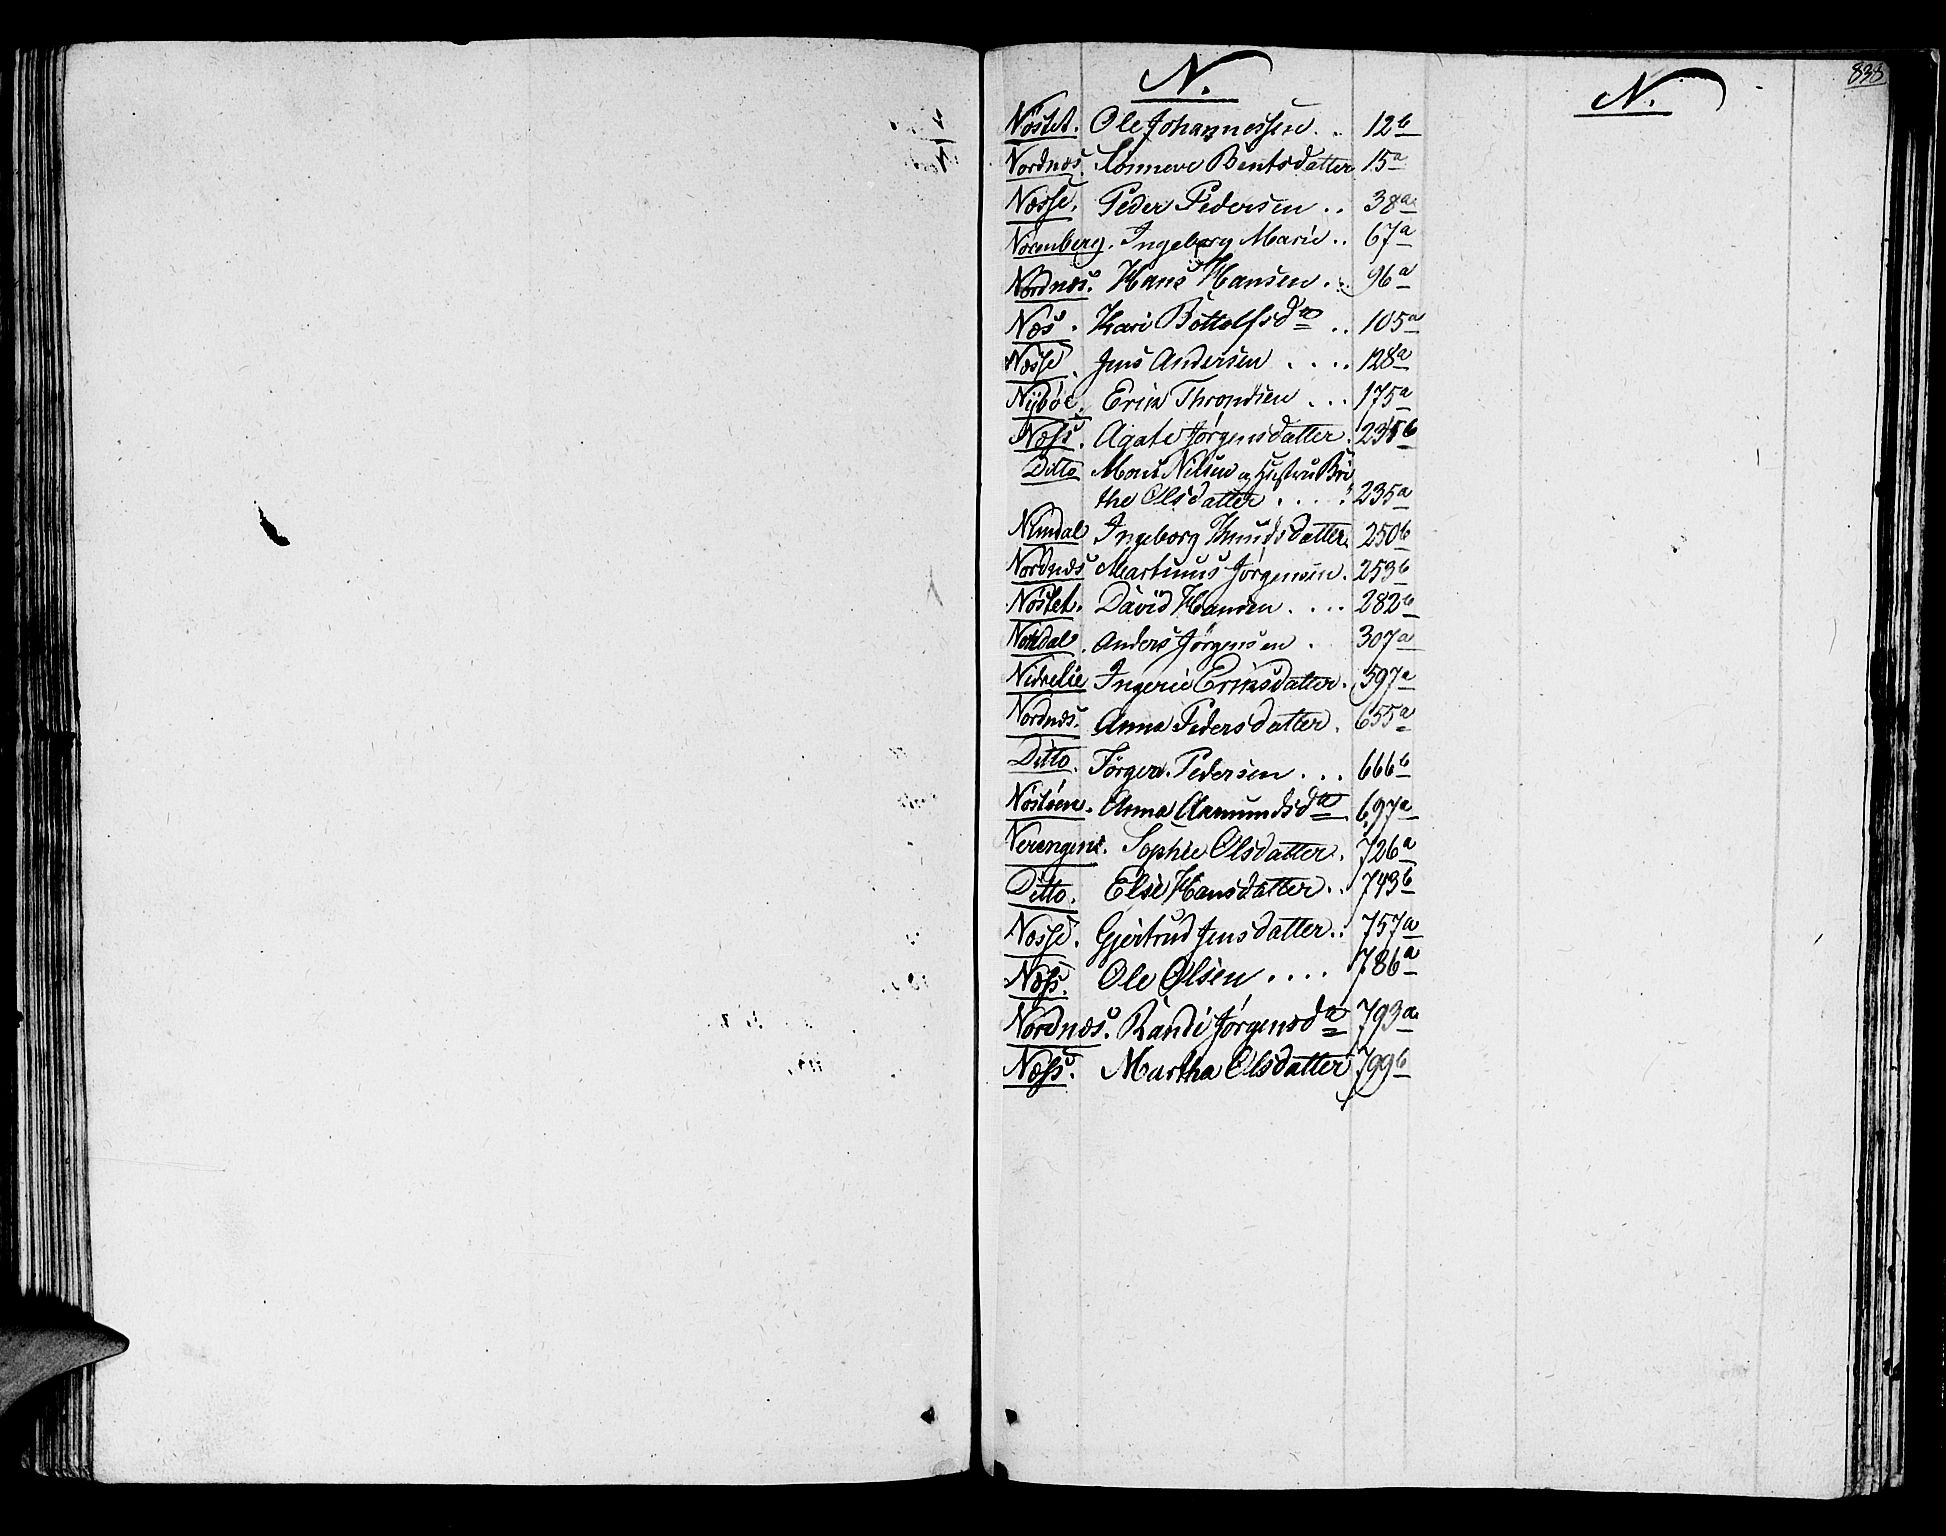 838
N.
N.
Nöstet. Ole Johannessen. .. 12b
Nordnæs. Sönneve Bentsdatter 15a
Næsse. Peder Pedersen .. 38a
Ingeborg Marie .. 67a
Nordnæs. Hans Hansen .. 96a
Næs. Kari Bottolfsda .. 105a
Næsse. Jens Andersen .... 128a
Nÿböe. Erik Throndsen ... 175a
Næss. Agate Jörgensdatter. b
Ditto Mons Nilsen og Hustru Bri
the Olsdatter .... 235a
Nundal Ingeborg Knudsdatter. 250b
Nordnæs Martinus Jörgensen. 253b
Nöstet. David Hansen .... 282b
Nondal. Anders Jörgensen . 307a
Nidrelie Ingerie Eriksdatter. 597a
Nordnæs. Anna Pedersdatter. 655a
Ditto. Jörgen Pedersen ... 666b
Nöstöen. Anna Aamundsda 697a
Sophie Olsdatter. 726a
Ditto. Else Hansdatter .. 743b
Næsse. Gjertrud Jensdatter .. 757a
Næss. Ole Olsen .... 786a
Nordnæs. Randi Jörgensda 793a
Næss. Martha Olsdatter 799b